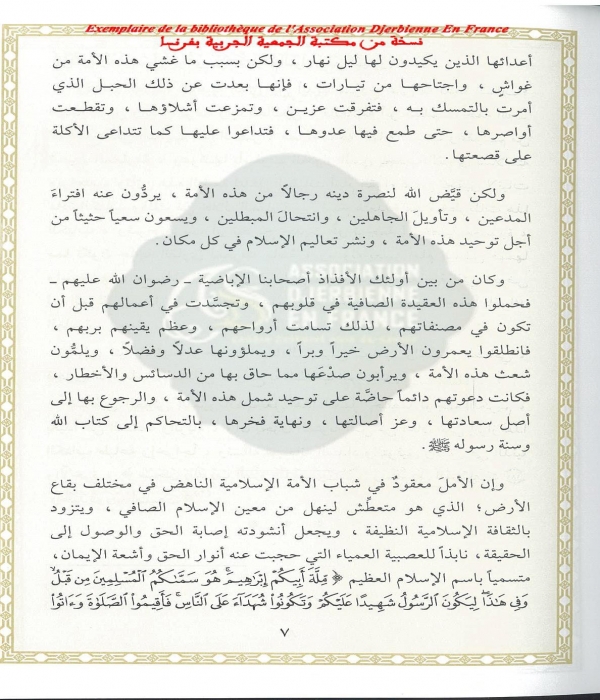 Exemplaire de la bibliothèque de l'Association Djerbienne En France
نسخة من مكتبة الجمعية الجربية بفرنسا
أعدائها الذين يكيدون لها ليل نهار ، ولكن بسبب ما غشي هذه الأمة من
غواشٍ ، واجتاحها من تيارات ، فإنها بعدت عن ذلك الحبل الذي
أمرت بالتمسك به ، فتفرقت عزين ، وتمزعت أشلاؤها ، وتقطعت
أواصرها ، حتى طمع فيها عدوها ، فتداعوا عليها كما تتداعى الأكلة
على قصعتها.
ولكن قيَّض الله لنصرة دينه رجالاً من هذه الأمة ، يردُّون عنه افتراءَ
المدعين ، وتأويلَ الجاهلين ، وانتحالَ المبطلين ، ويسعون سعياً حثيثاً من
أجل توحيد هذه الأمة ، ونشر تعاليم الإسلام في كل مكان.
وكان من بين أولئك الأفذاذ أصحابنا الإباضية ـ رضوان الله عليهم ـ
فحملوا هذه العقيدة الصافية في قلوبهم ، وتجسَّدت في أعمالهم قبل أن
تكون في مصنفاتهم ، لذلك تسامت أرواحهم ، وعظم يقينهم بربهم ،
فانطلقوا يعمرون الأرض خيراً وبراً ، ويملؤونها عدلاً وفضلاً ، ويلمُّون
شعث هذه الأمة ، ويرأبون صدْعَها مما حاق بها من الدسائس والأخطار ،
فكانت دعوتهم دائماً حاضَّة على توحيد شمل هذه الأمة ، والرجوع بها إلى
أصل سعادتها ، وعز أصالتها ، ونهاية فخرها ، بالتحاكم إلى كتاب الله
وسنة رسوله ﷺ .
وإن الأملَ معقودٌ في شباب الأمة الإسلامية الناهض في مختلف بقاع
الأرض؛ الذي هو متعطِّش لينهل من معين الإسلام الصافي ، ويتزود
بالثقافة الإسلامية النظيفة ، ويجعل أنشودته إصابة الحق والوصول إلى
الحقيقة ، نابذاً للعصبية العمياء التي حجبت عنه أنوار الحق وأشعة الإيمان،
متسمياً باسم الإسلام العظيم ﴿ مِّلَّةَ أَبِيكُمْ إِبْرَاهِيمَ هُوَ سَمَّاكُمُ الْمُسْلِمِينَ مِن قَبْلُ
وَفِي هَٰذَا لِيَكُونَ الرَّسُولُ شَهِيدًا عَلَيْكُمْ وَتَكُونُوا شُهَدَاءَ عَلَى النَّاسِ فَأَقِيمُوا الصَّلَاةَ وَءَاتُوا
٧
ASSOCIATION
DJERBIENNE
EN FRANCE